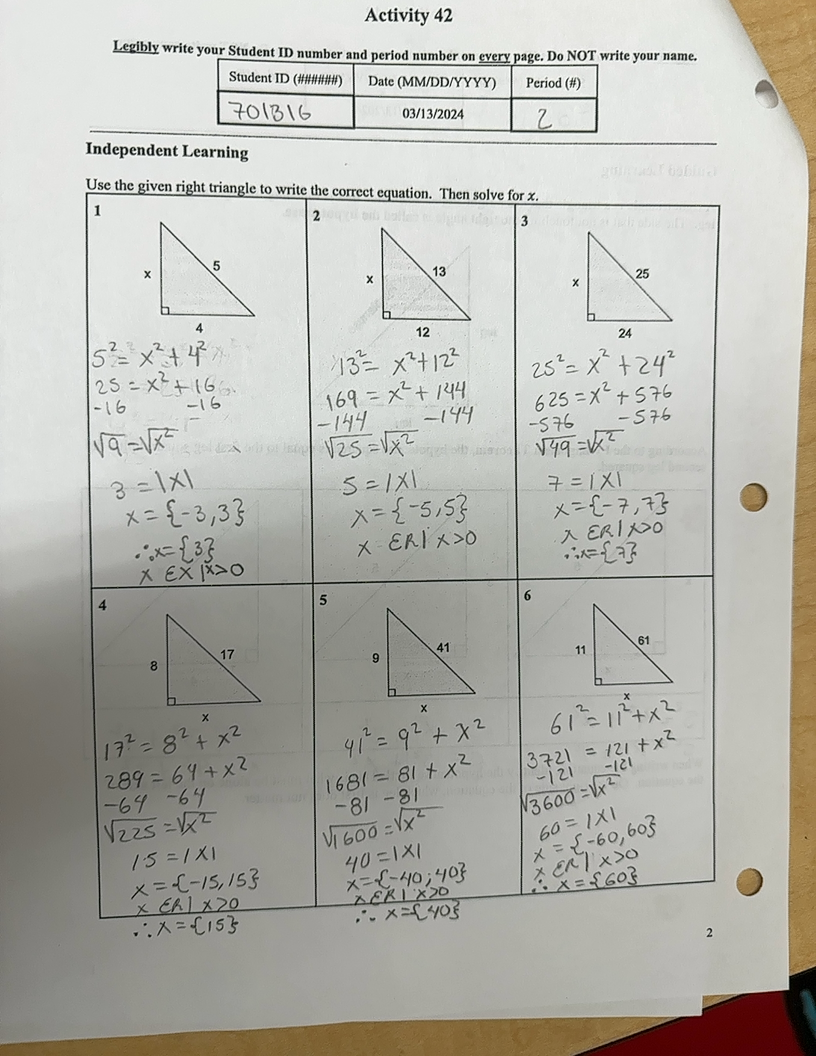 Activity 42
Legibly write your Student ID number and period number on every page. Do NOT write your name.
Student ID (######) Date (MM/DD/YYYY) Period (#)
701316 03/13/2024 2
Independent Learning
Use the given right triangle to write the correct equation. Then solve for x.
1
x 5
4
5² = x² + 4²
25 = x² + 16
-16 -16
√9 = √x²
3 = |x|
x = {-3,3}
∴x={3}
x ɛX |x>0
2
x 13
12
13² = x²+12²
169 = x² + 144
-144 -144
√25 = √x²
5 = |x|
x = {-5,5}
x ɛR| x>0
3
x 25
24
25² = x² + 24²
625 = x² + 576
-576 -576
√49 = √x²
7 = |x|
x = {-7,7}
x ɛR| x>0
∴x={7}
4
8 17
x
17² = 8² + x²
289 = 64 + x²
-64 -64
√225 = √x²
15 = |x|
x = {-15,15}
x ɛR| x>0
∴x={15}
5
9 41
x
41² = 9² + x²
1681 = 81 + x²
-81 -81
√1600 = √x²
40 = |x|
x={-40,40}
x ɛR| x>0
∴ x={40}
6
11 61
x
61² = 11² + x²
3721 = 121 + x²
-121 -121
√3600 = √x²
60 = |x|
x = {-60,60}
x ɛR| x>0
∴ x={60}
2